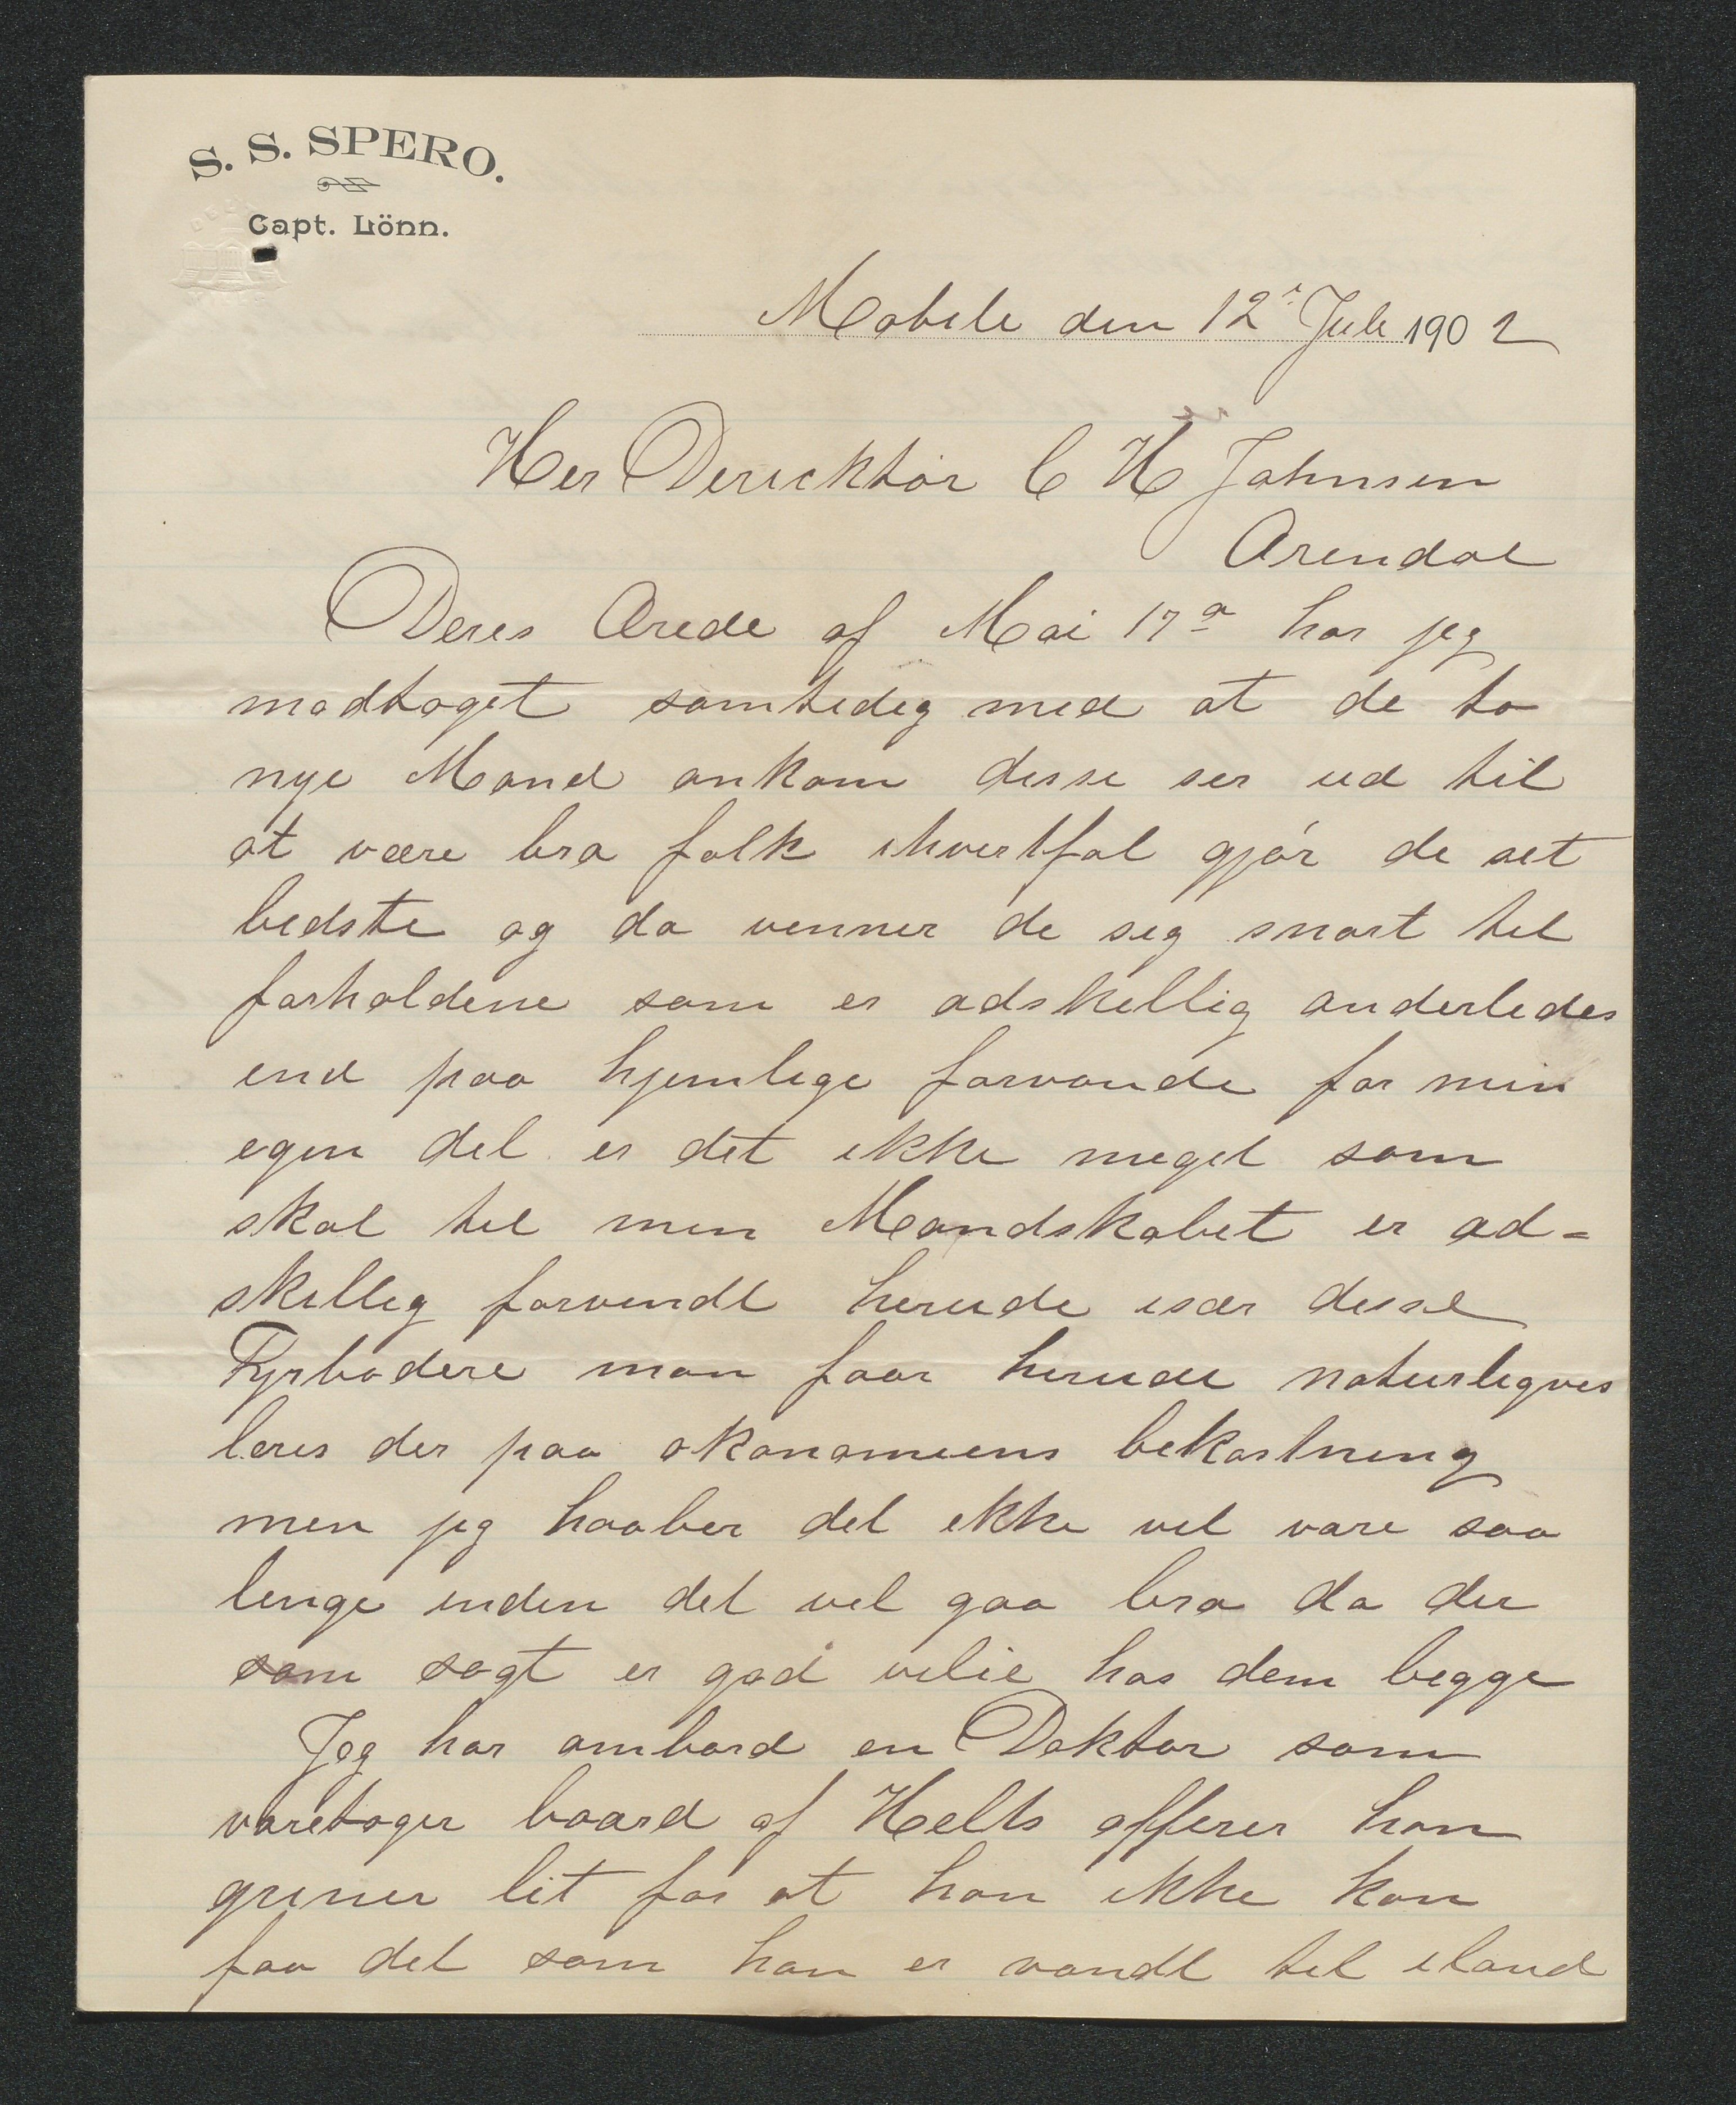 S. S. SPERO.
Capt. Lönn.
Mobile den 12te Juli 1902
Her Dericktör C H Johnsen
Arendal
Deres Ærede af Mai 17de har jeg
modtaget samtidig med at de to
nye Mand ankom disse ser ud til
at være bra folk ihvertfal gjør de set
bedste og da venner de sig snart til
forholdene som er adskillig anderledes
end paa hjemlige farvande for min
egen del er det ikke meget som
skal til men Mandskabet er ad-
skillig forvendt herude især disse
Fyrbødere man faar herude naturligvis
leves der paa økonomiens bekostning
men jeg haaber det ikke vil vare saa
lenge inden det vil gaa bra da der
som sagt er god vilie hos dem begge
Jeg har ombord en Doktor som
varetager board af Helts offeser han
griner lit for at han ikke kan
faa det som han er vandt til iland